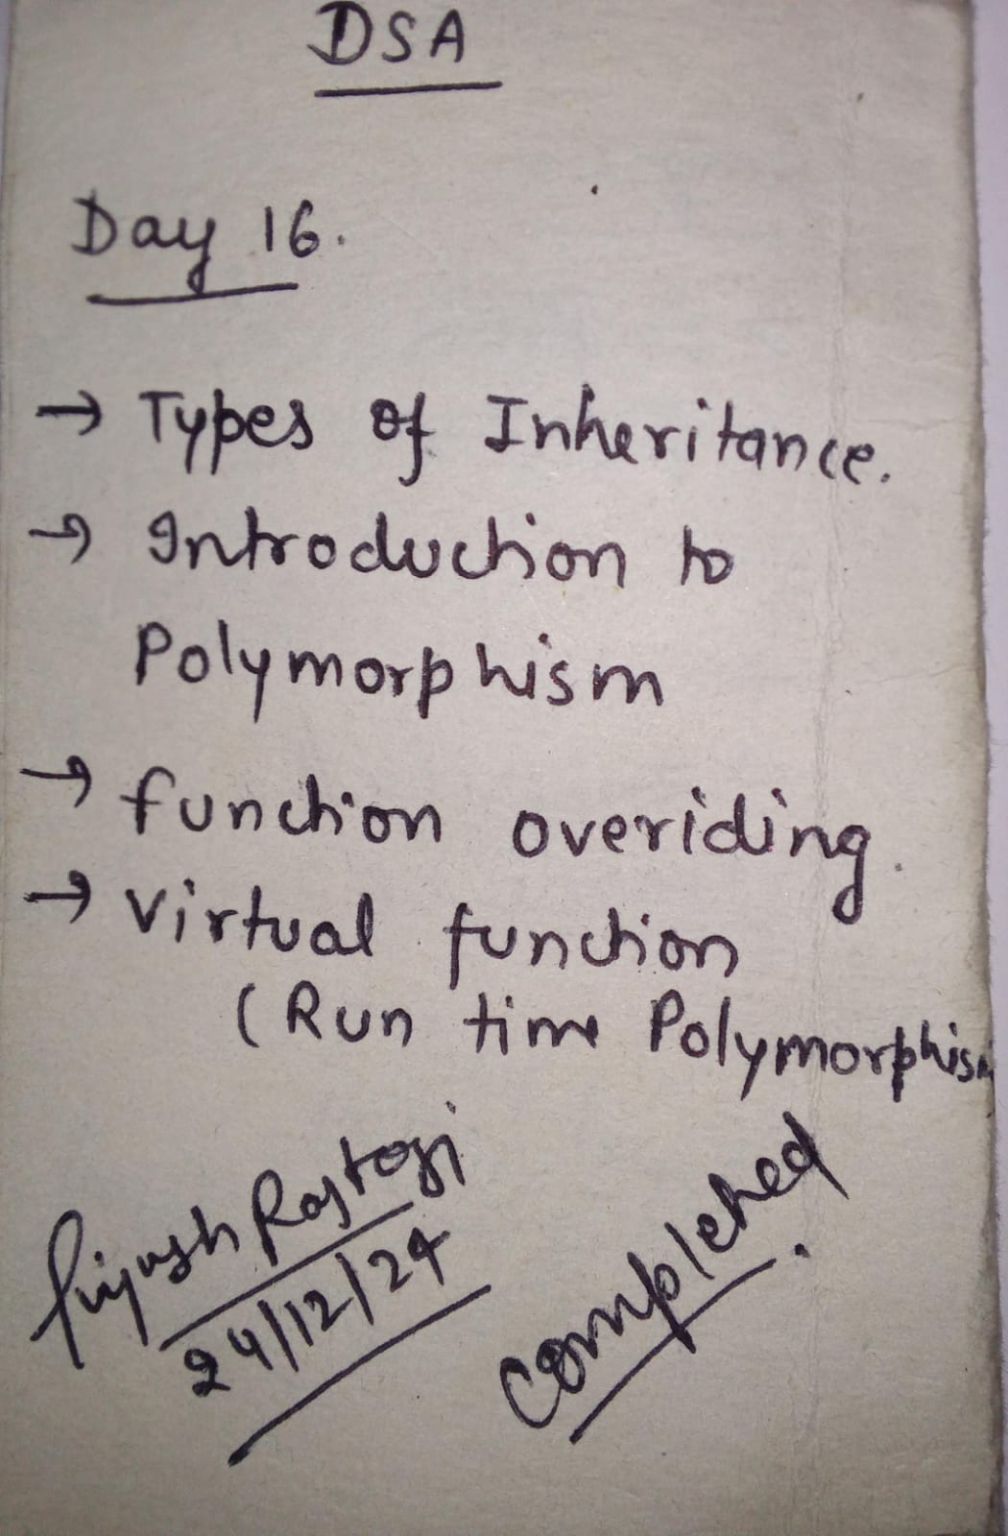 DSA
Day 16.
→ Types of Inheritance.
→ Introduction to
Polymorphism
→ function overiding.
→ Virtual function
(Run time Polymorphism
Piyush Rastogi
24/12/24
Completed.